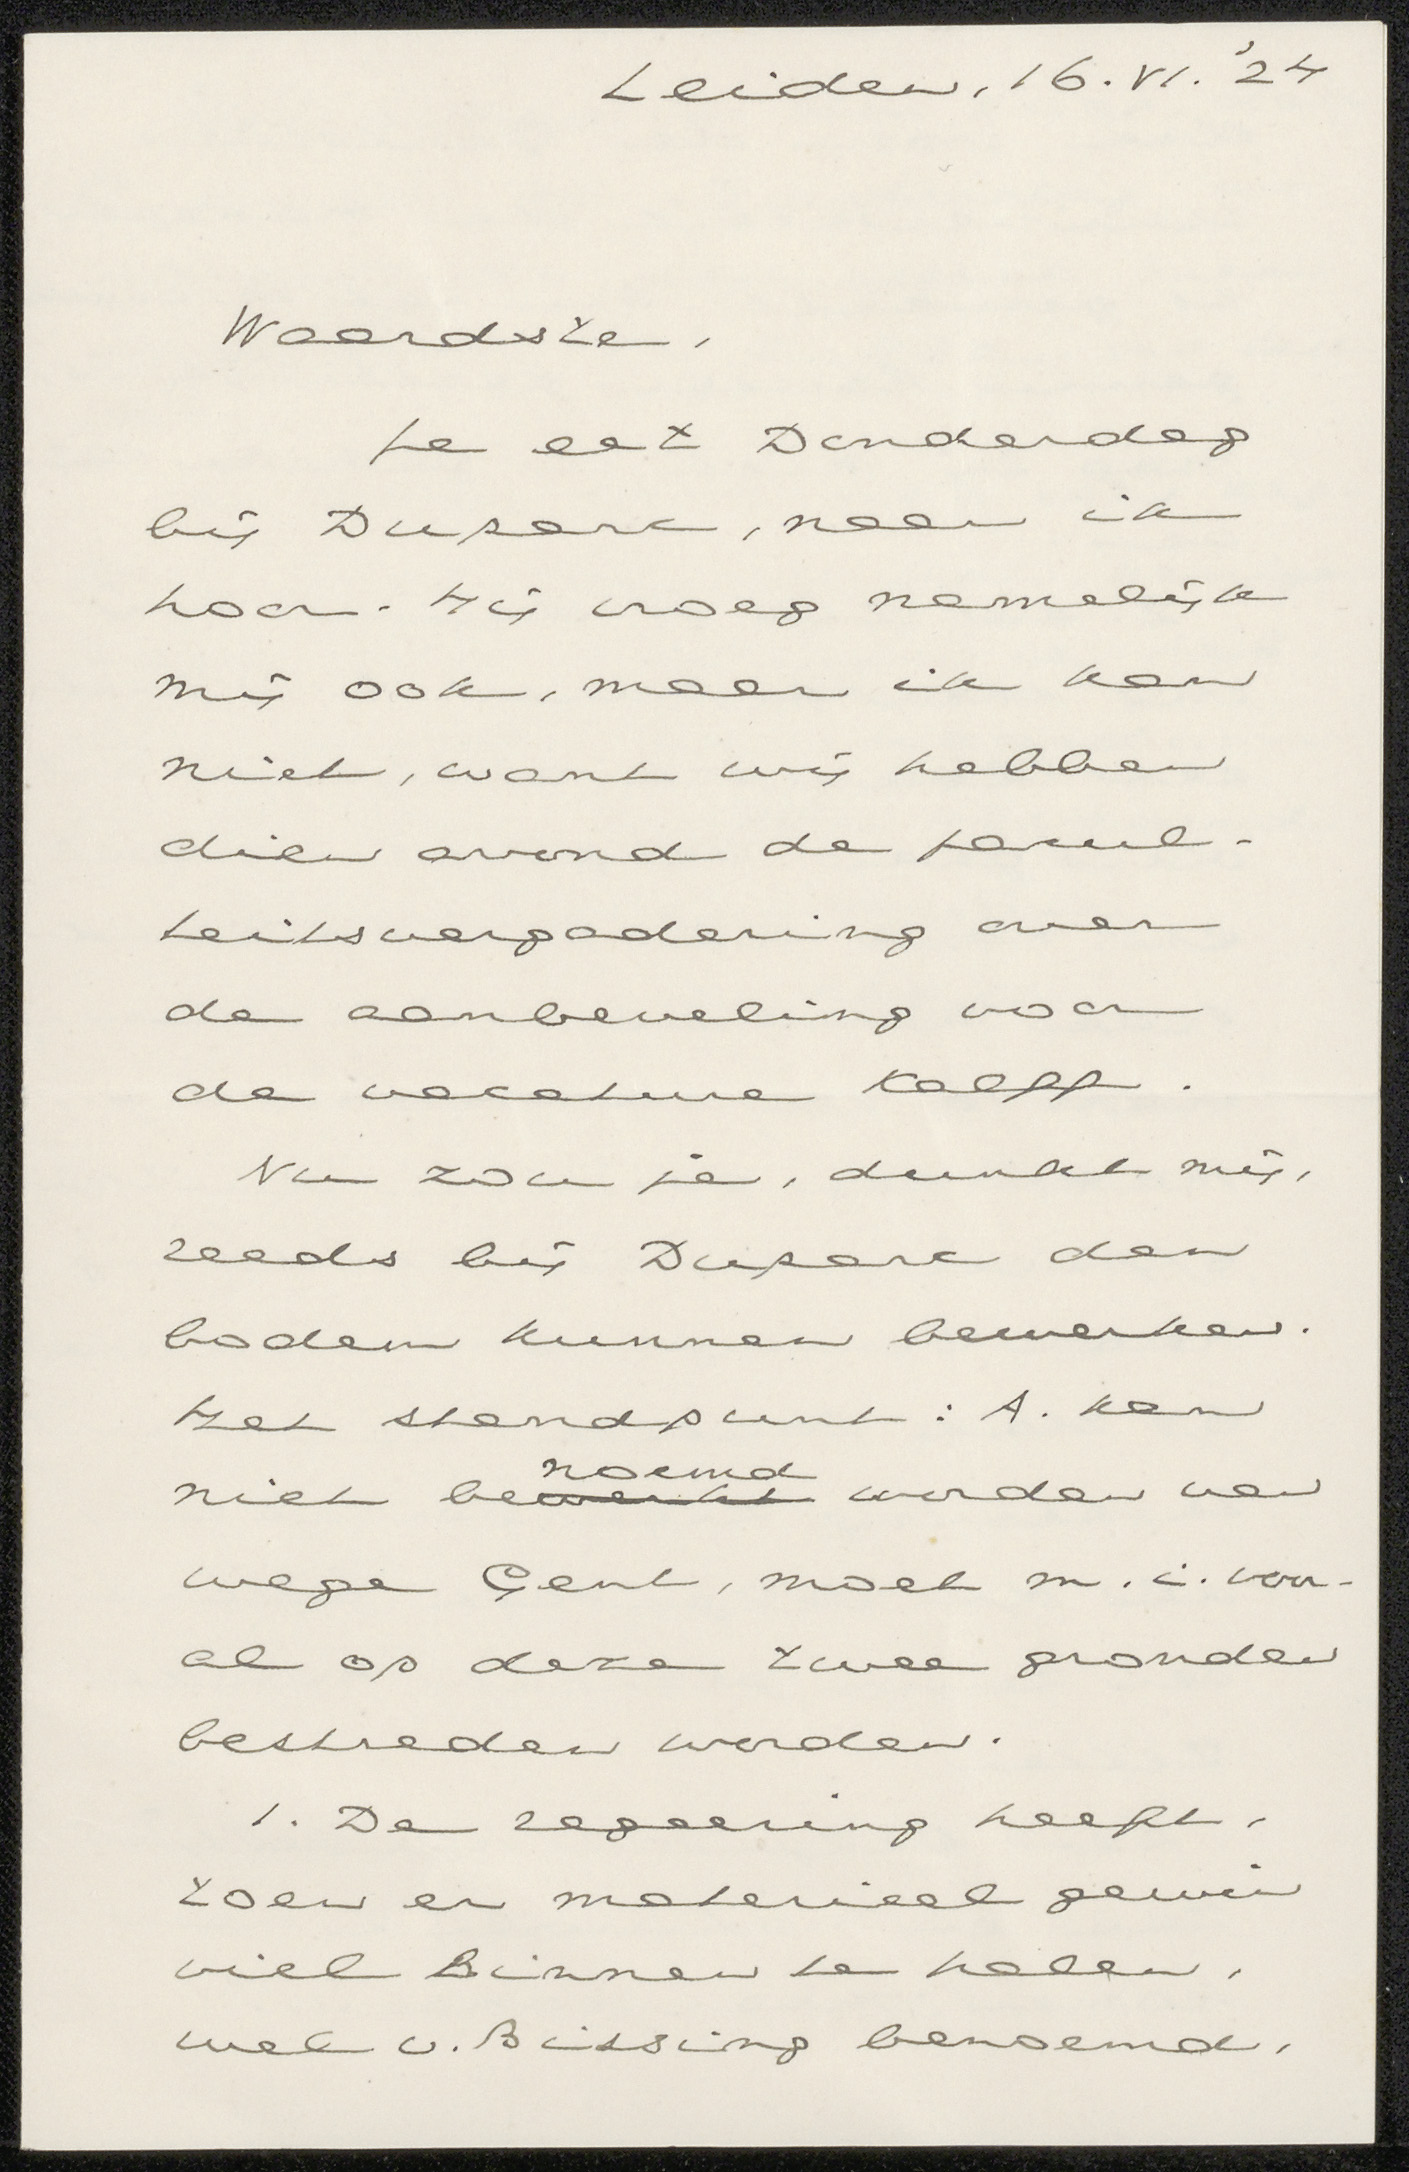 Leiden, 16.VI.'24
Waardste,
Je eet Donderdag
bij Duparc, naar ik
hoor. Hij vroeg namelijk
mij ook, maar ik kan
niet, want wij hebben
dien avond de facul-
teitsvergadering over
de aanbeveling voor
de vacature Kalff.
Nu zou je, dunkt mij,
reeds bij Duparc den
bodem kunnen bewerken.
Het standpunt: A. kan
noemd
niet bewerkt worden van
wege Gent, moet m.i. voor-
al op deze twee gronden
bestreden worden.
1. De regeering heeft,
toen er materieel gewin
viel binnen te halen,
wel v. Bissing benoemd,